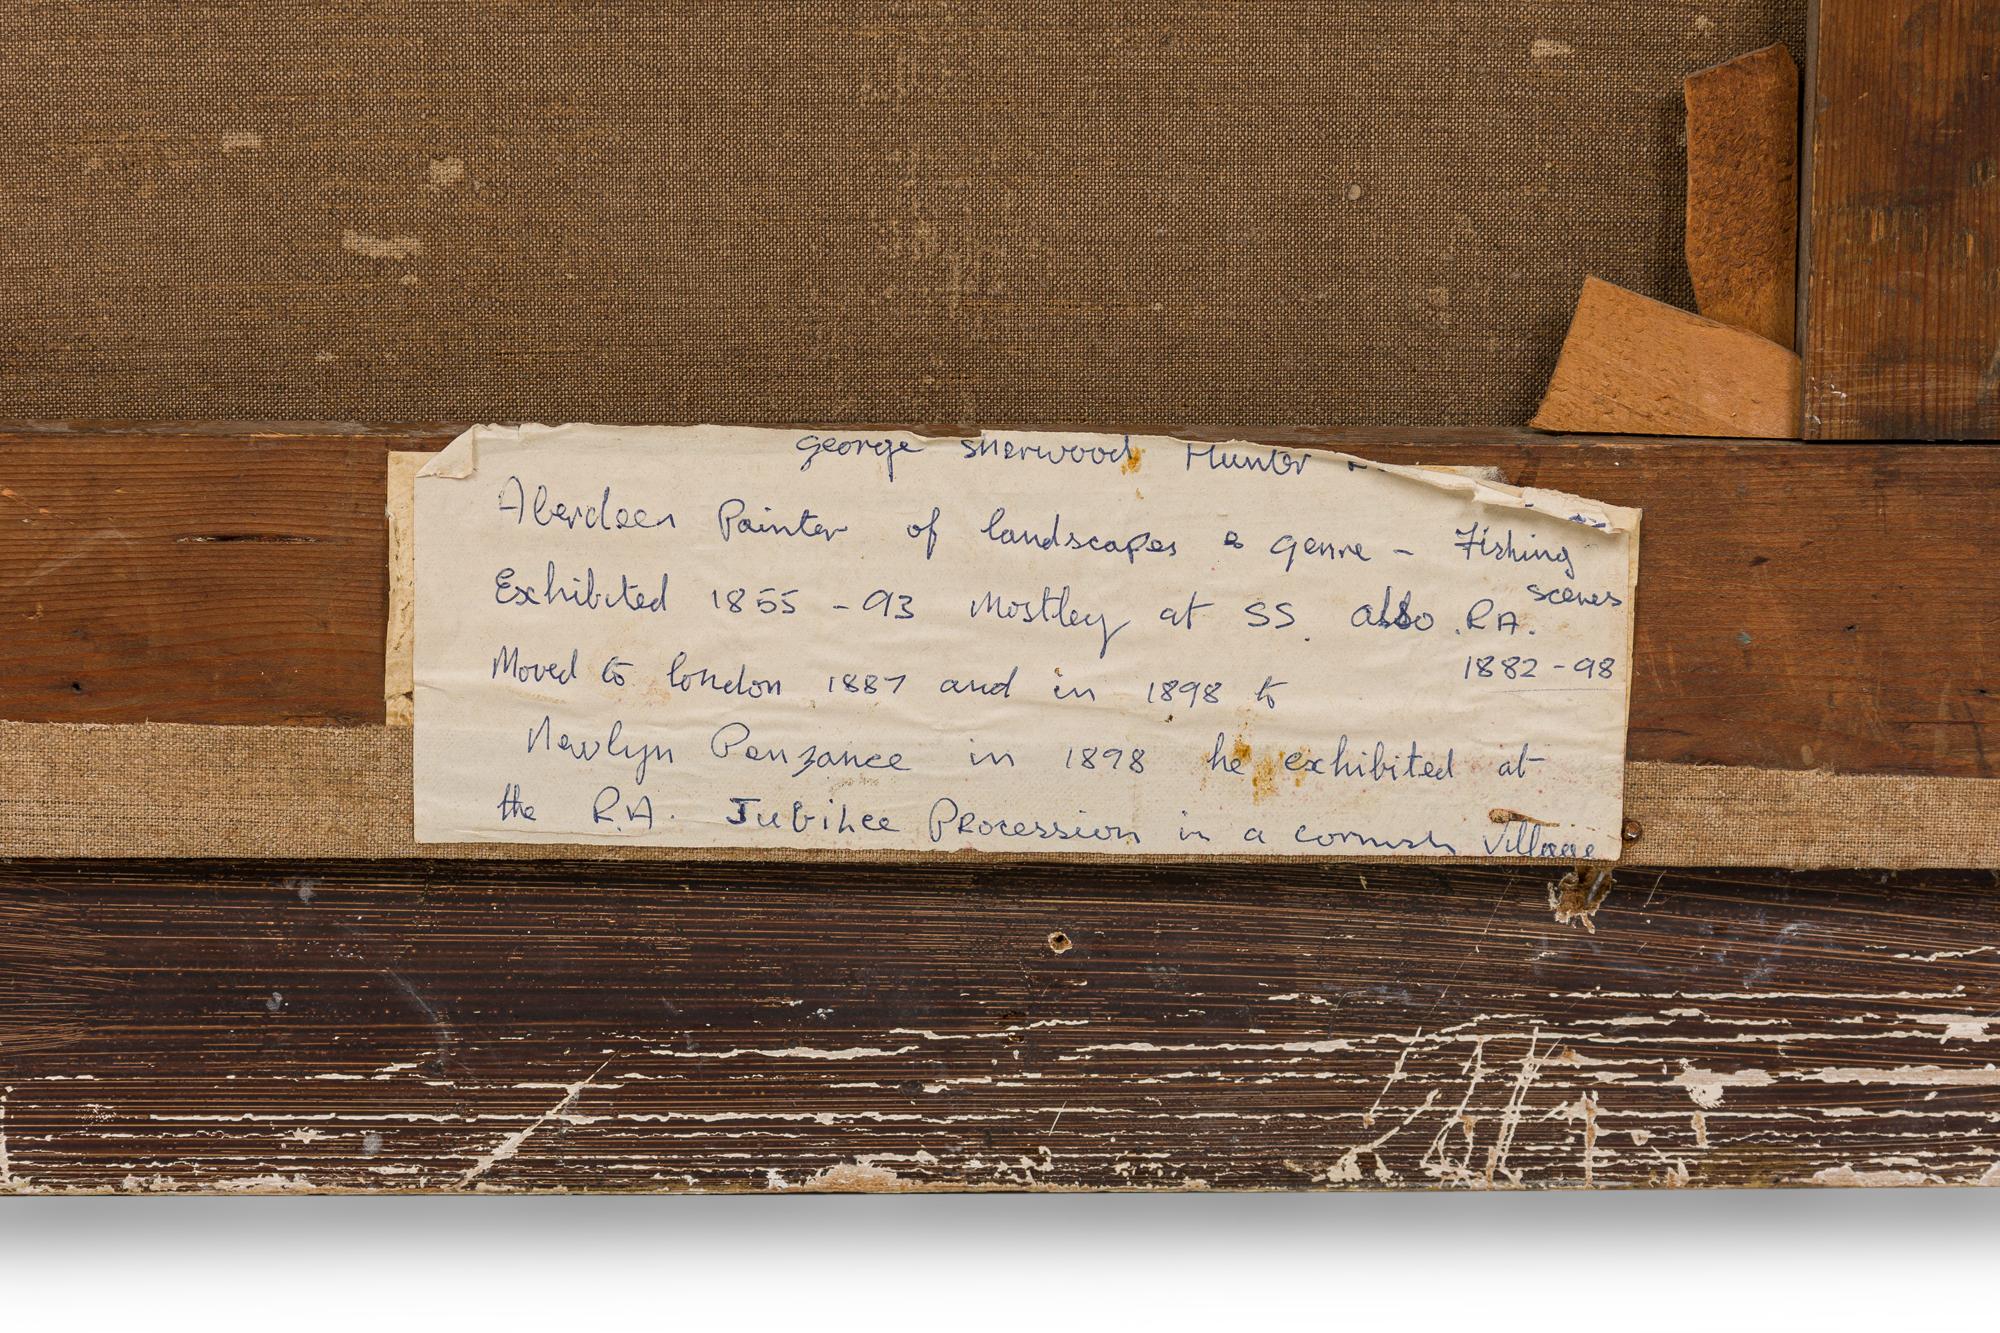 George Sherwood Hunter
Aberdeen Painter of landscapes & genre - Fishing
scenes
Exhibited 1855 - 93 Mostley at SS. also .R.A.
1882 - 98
Moved to london 1887 and in 1898 to
Newlyn Penzance in 1898 he exhibited at
the R.A. Jubilee Procession in a cornish village